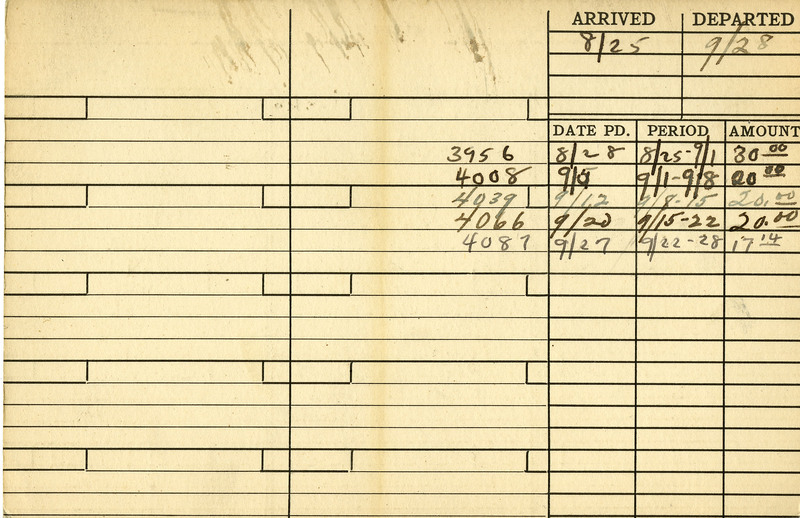 ARRIVED DEPARTED
8/25 9/28
DATE PD. PERIOD AMOUNT
3956 8/28 8/25-9/1 30.00
4008 9/5 9/1-9/8 20.00
4039 9/12 9/8-15 20.00
4066 9/20 9/15-22 20.00
4087 9/27 9/22-28 17 14